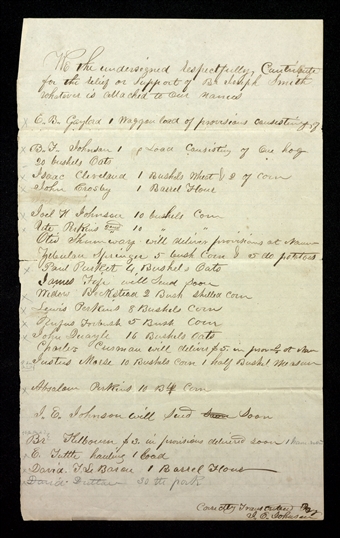 We the undersigned respectfully Contribute
for the relief or support of Br Joseph Smith
Whatever is attached to our names
C. B. Gaylord 1 Waggon load of provisions Consisting of
B. F. Johnson 1 Load Consisting of One hog
20 bushels Oats
Isaac Cleveland 1 Bushels Wheat & 2 of Corn
John Crosby 1 Barrel Flour
Joel H Johnson 10 bushels Corn
Perkins 10 " "
Otis Shumway will deliver provisions at
Zebulon Springer 5 bush Corn & 5 do potatoes
Paul 4 Bushels Oats
James will Send Soon
Widow Beckstead 2 Bush Shelled Corn
Lewis Perkins 8 Bushels Corn
Rufus 5 Bush Corn
John 16 Bushels Oats
Charles will deliver $5 in prov at
Justus Morse 10 Bushels Corn 1 half Bushel
Absalom Perkins 10 Corn
J. E. Johnson will Send Soon
Br $3. in provisions delivered soon
E. Tuttle hauling 1 load
David T. Le Baron 1 Barrel Flour
David 30 lb pork
Correctly Transcribed By
J. E. Johnson